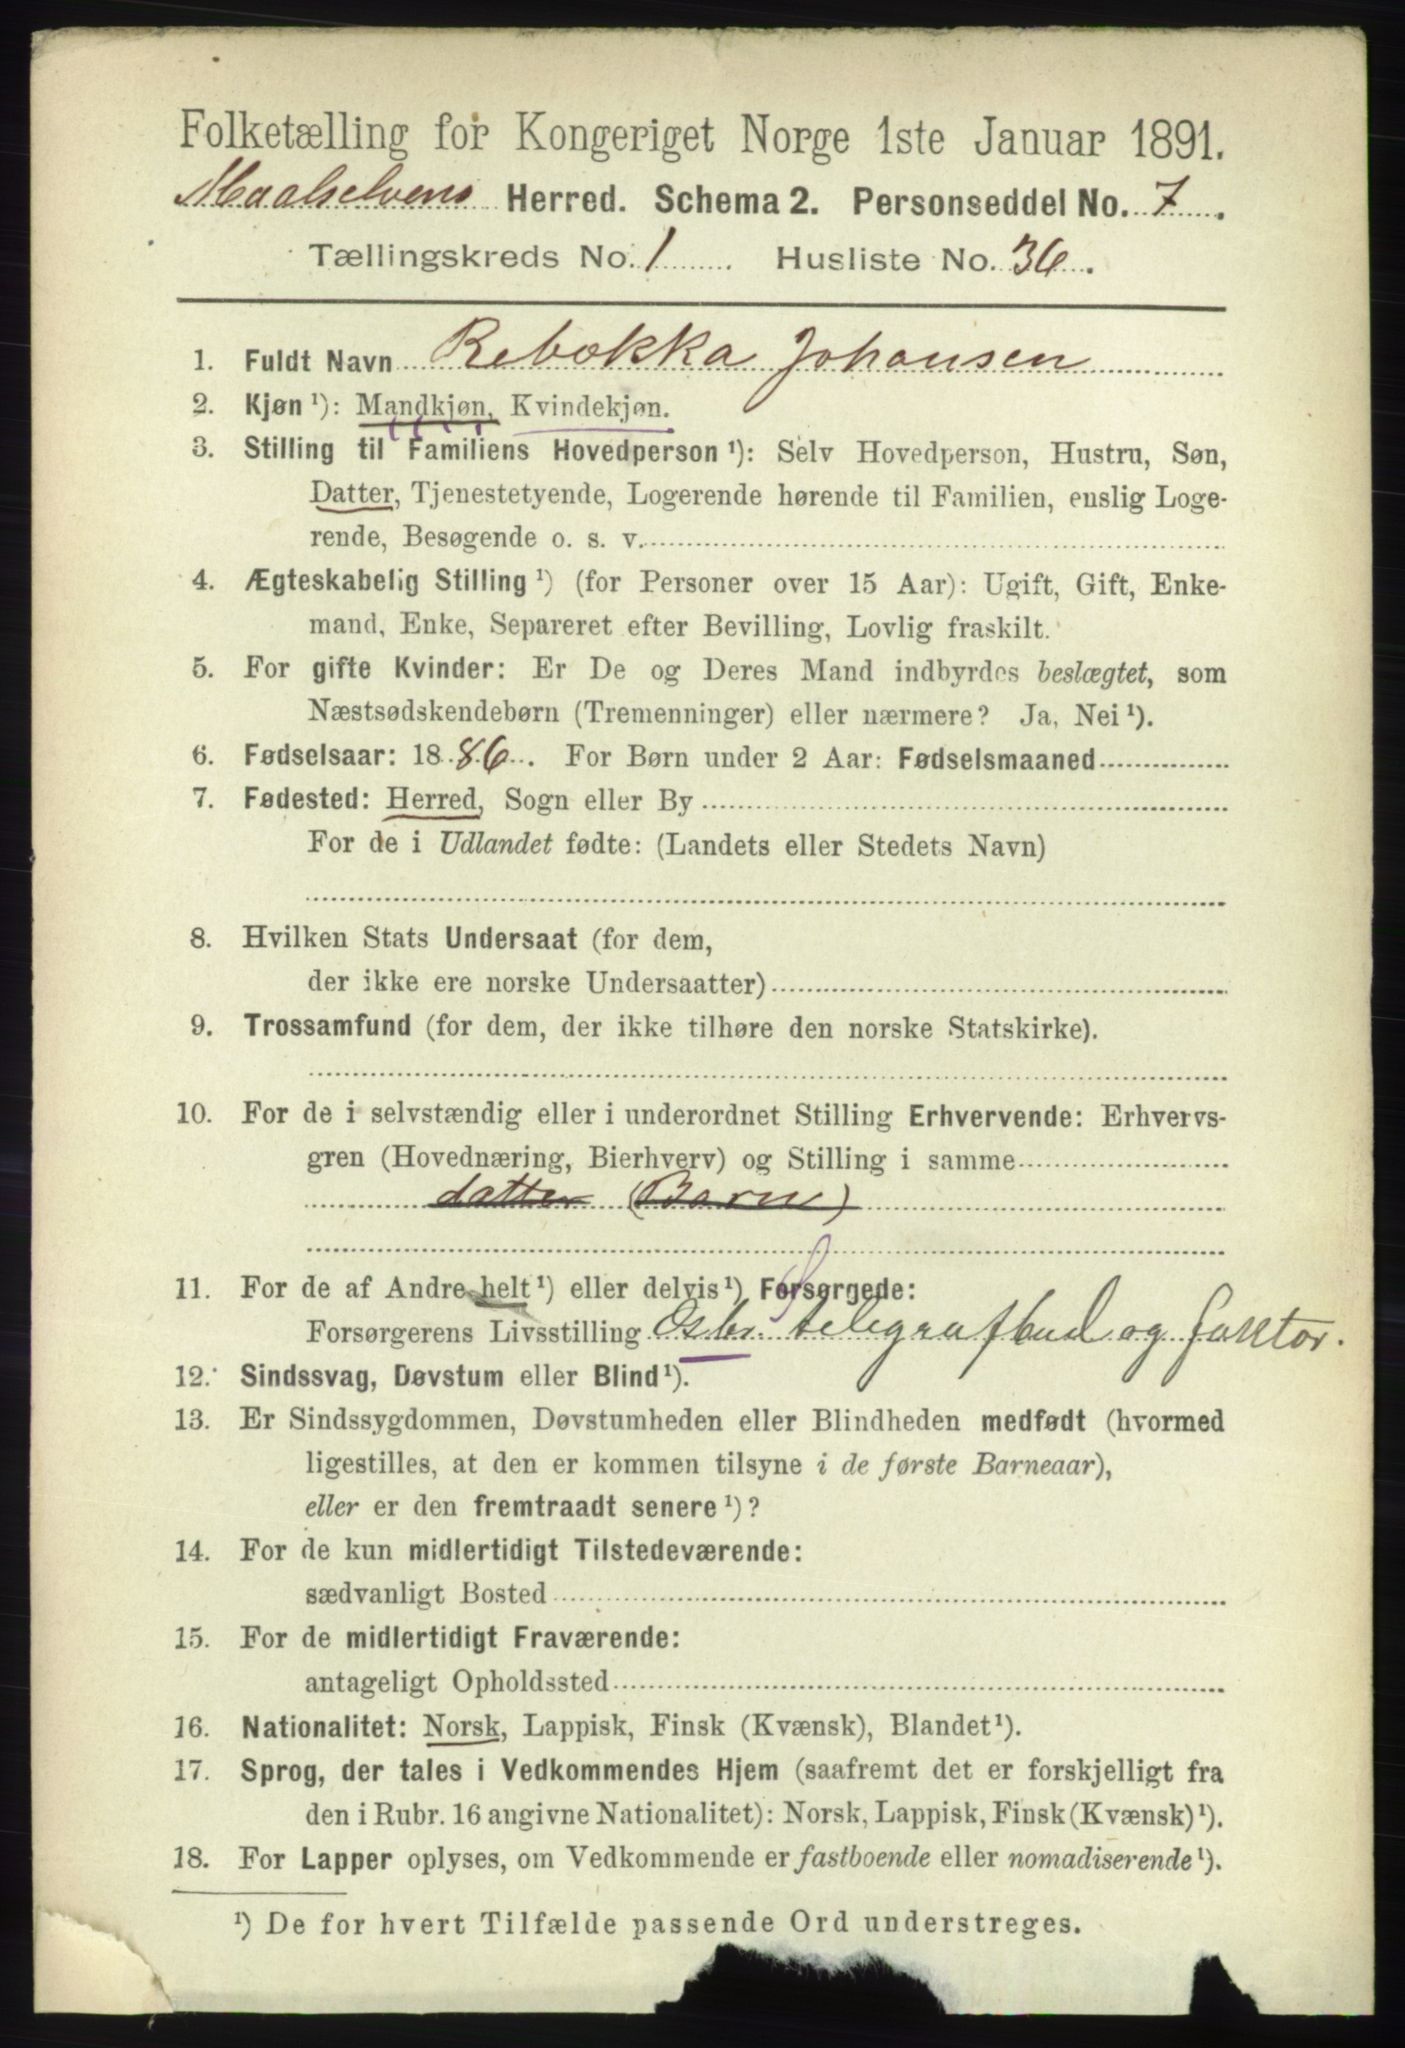 Folketælling for Kongeriget Norge 1ste Januar 1891.
Maalselvens Herred. Schema 2. Personseddel No. 7.
Tællingskreds No. 1 Husliste No. 36.
1. Fuldt Navn Rebekka Johansen
2. Kjøn ¹): Mandkjøn, Kvindekjøn.
3. Stilling til Familiens Hovedperson ¹): Selv Hovedperson, Hustru, Søn,
Datter, Tjenestetyende, Logerende hørende til Familien, enslig Loge-
rende, Besøgende o. s. v.
4. Ægteskabelig Stilling ¹) (for Personer over 15 Aar): Ugift, Gift, Enke-
mand, Enke, Separeret efter Bevilling, Lovlig fraskilt.
5. For gifte Kvinder: Er De og Deres Mand indbyrdes beslægtet, som
Næstsødskendebørn (Tremenninger) eller nærmere? Ja, Nei ¹).
6. Fødselsaar: 1886. For Børn under 2 Aar: Fødselsmaaned
7. Fødested: Herred, Sogn eller By
For de i Udlandet fødte: (Landets eller Stedets Navn)
8. Hvilken Stats Undersaat (for dem,
der ikke ere norske Undersaatter)
9. Trossamfund (for dem, der ikke tilhøre den norske Statskirke).
10. For de i selvstændig eller i underordnet Stilling Erhvervende: Erhvervs-
gren (Hovednæring, Bierhverv) og Stilling i samme
datter (Barn)
11. For de af Andre helt ¹) eller delvis ¹) Forsørgede:
Forsørgerens Livsstilling telegrafbud og
12. Sindssvag, Døvstum eller Blind ¹).
13. Er Sindssygdommen, Døvstumheden eller Blindheden medfødt (hvormed
ligestilles, at den er kommen tilsyne i de første Barneaar),
eller er den fremtraadt senere ¹)?
14. For de kun midlertidigt Tilstedeværende:
sædvanligt Bosted
15. For de midlertidigt Fraværende:
antageligt Opholdssted
16. Nationalitet: Norsk, Lappisk, Finsk (Kvænsk), Blandet ¹).
17. Sprog, der tales i Vedkommendes Hjem (saafremt det er forskjelligt fra
den i Rubr. 16 angivne Nationalitet): Norsk, Lappisk, Finsk (Kvænsk) ¹).
18. For Lapper oplyses, om Vedkommende er fastboende eller nomadiserende ¹).
¹) De for hvert Tilfælde passende Ord understreges.